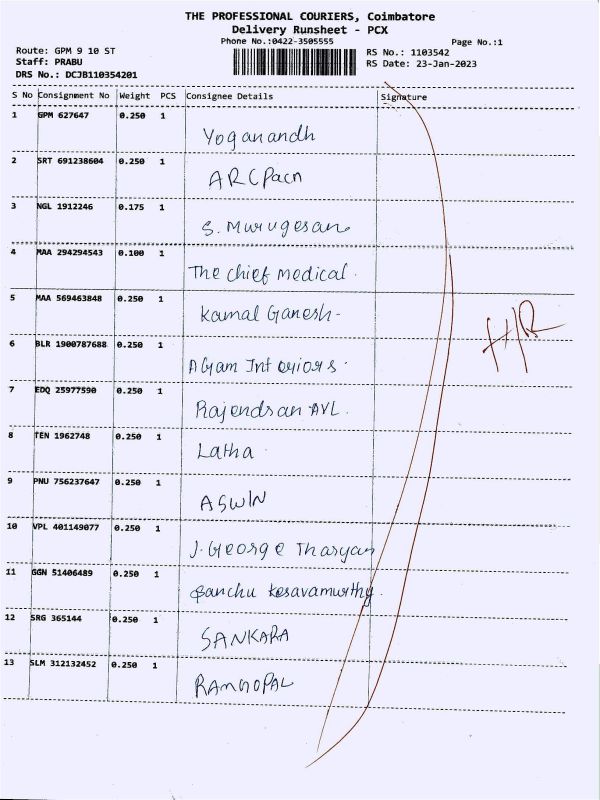 THE PROFESSIONAL COURIERS, Coimbatore
Delivery Runsheet - PCX
Phone No.:0422-3505555
Page No.:1
Route: GPM 9 10 ST
RS No.: 1103542
Staff: PRABU
RS Date: 23-Jan-2023
DRS No.: DCJB110354201
S No Consignment No Weight PCS Consignee Details Signature
1 GPM 627647 0.250 1
Yoganandh
2 SRT 691238604 0.250 1
ARCPacn
3 NGL 1912246 0.175 1
S. Murugesan
4 MAA 294294543 0.100 1
The chief Medical.
5 MAA 569463848 0.250 1
Kamal Ganesh-
6 BLR 1900787688 0.250 1
Agam Interiors.
7 EDQ 25977590 0.250 1
Rajendran AVL.
8 TEN 1962748 0.250 1
Latha.
9 PNU 756237647 0.250 1
ASWIN
10 VPL 401149077 0.250 1
J. George Tharyan
11 GGN 51406489 0.250 1
Kesavamurthy.
12 SRG 365144 0.250 1
SANKARA
13 SLM 312132452 0.250 1
RAMGOPAL